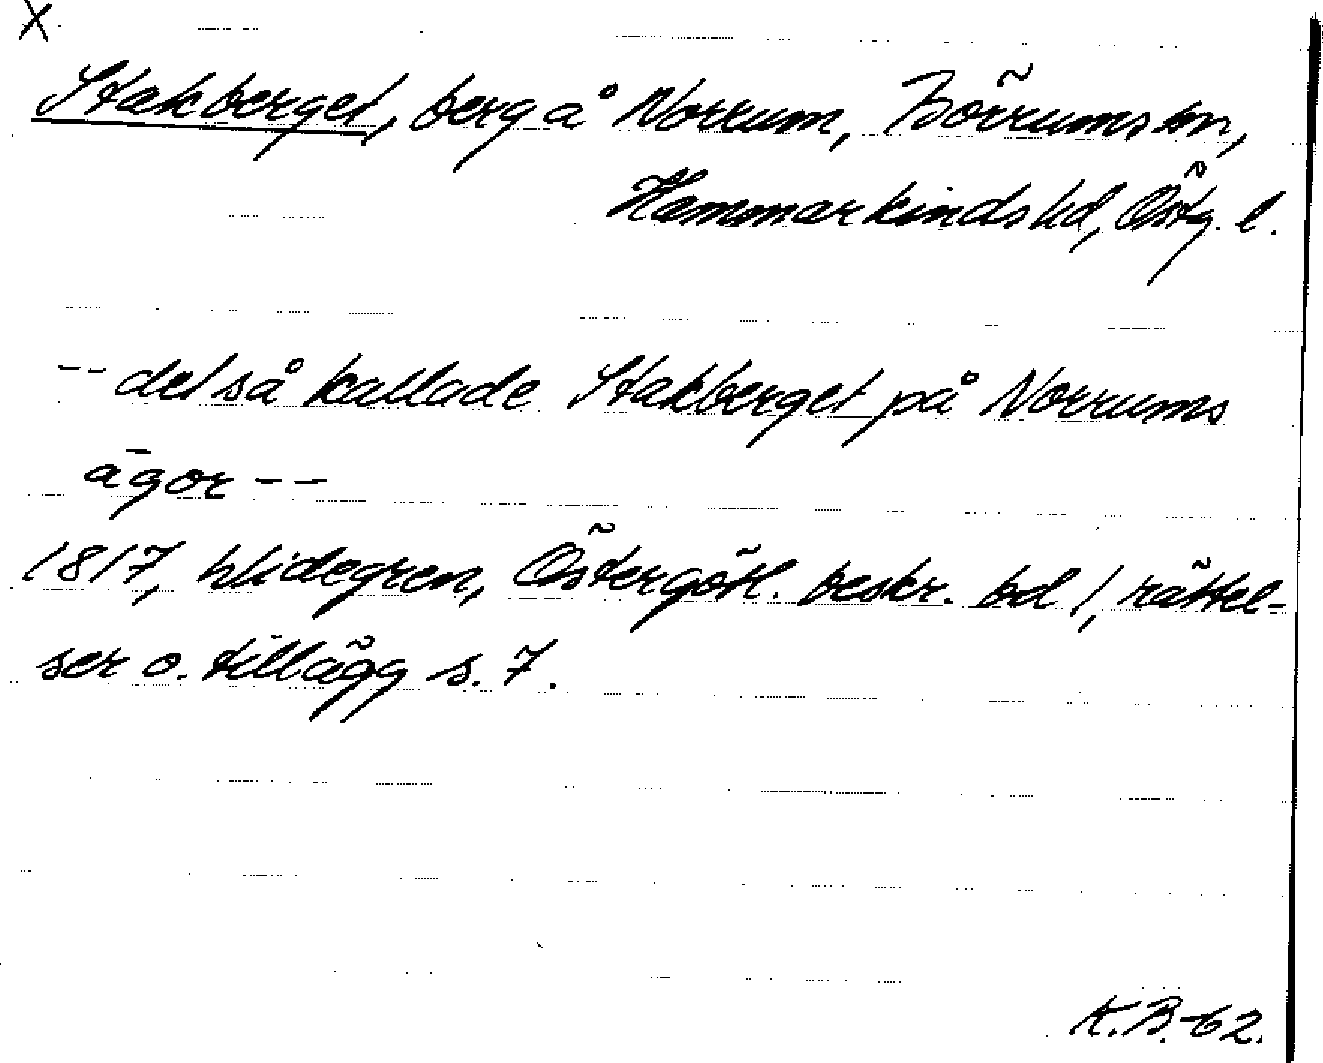 X
Stakberget, berg å Norrum, Börrums sn,
Hammarkinds hd, Östg. l.
-- det så kallade Stakberget på Norrums
ägor --
1817, Widegren, Östergötl. beskr. bd 1, rättel-
ser o. tillägg s. 7.
K.B. -62.